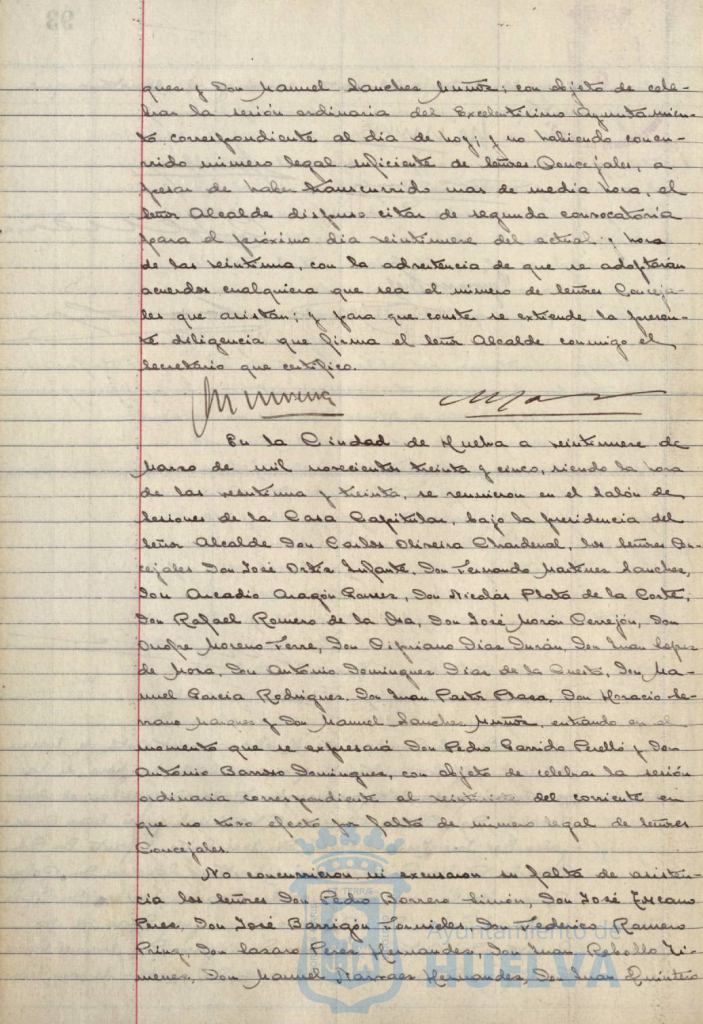 ques y Don Manuel Sanchez Muñoz; con objeto de cele-
brar la sesión ordinaria del Excelentísimo Ayuntamien-
to correspondiente al dia de hoy; y no habiendo concu-
rrido número legal suficiente de señores Concejales, a
pesar de haber transcurrido mas de media hora, el
señor Alcalde dispuso citar de segunda convocatoria
para el próximo dia veintinueve del actual y hora
de las veintiuna, con la advertencia de que se adoptarán
acuerdos cualquiera que sea el número de señores Conceja-
les que asistan; y para que conste se extiende la presen-
te diligencia que firma el señor Alcalde conmigo el
Secretario que certifico.
En la Ciudad de Huelva a veintinueve de
Marzo de mil novecientos treinta y cinco, siendo la hora
de las veintiuna y treinta, se reunieron en el Salón de
Sesiones de la Casa Capitular, bajo la presidencia del
señor Alcalde Don Carlos Oliveira Chardenal, los señores Con-
cejales Don José Ortiz Infante, Don Fernando Martinez Sanchez,
Don Arcadio Aragón Gomez, Don Nicolás Plata de la Corte,
Don Rafael Romero de la Osa, Don José Morón Cerrejón, Don
Onofre Moreno Ferre, Don Cipriano Dias Durán, Don Juan Lopez
de Mora, Don Antonio Dominguez Diaz de la Cuesta, Don Ma-
nuel Garcia Rodriguez, Don Juan Pastor Plaza, Don Horacio Se-
rrano Marquez y Don Manuel Sanchez Muñoz, entrando en el
momento que se expresará Don Pedro Garrido Perelló y Don
Antonio Barroso Dominguez, con objeto de celebrar la sesión
ordinaria correspondiente al del corriente en
que no tuvo efecto por falta de número legal de señores
Concejales.
No concurrieron ni excusaron su falta de asisten-
cia los señores Don Pedro Borrero Limón, Don José Toscano
Perez, Don José Barrigón Fornieles, Don Federico Romero
Don Lazaro Perez Hernandez, Don Juan Rebollo Ji-
menez, Don Manuel Narvaez Hernandez, Don Juan Quintero
Ayuntamiento de
HUELVA
93